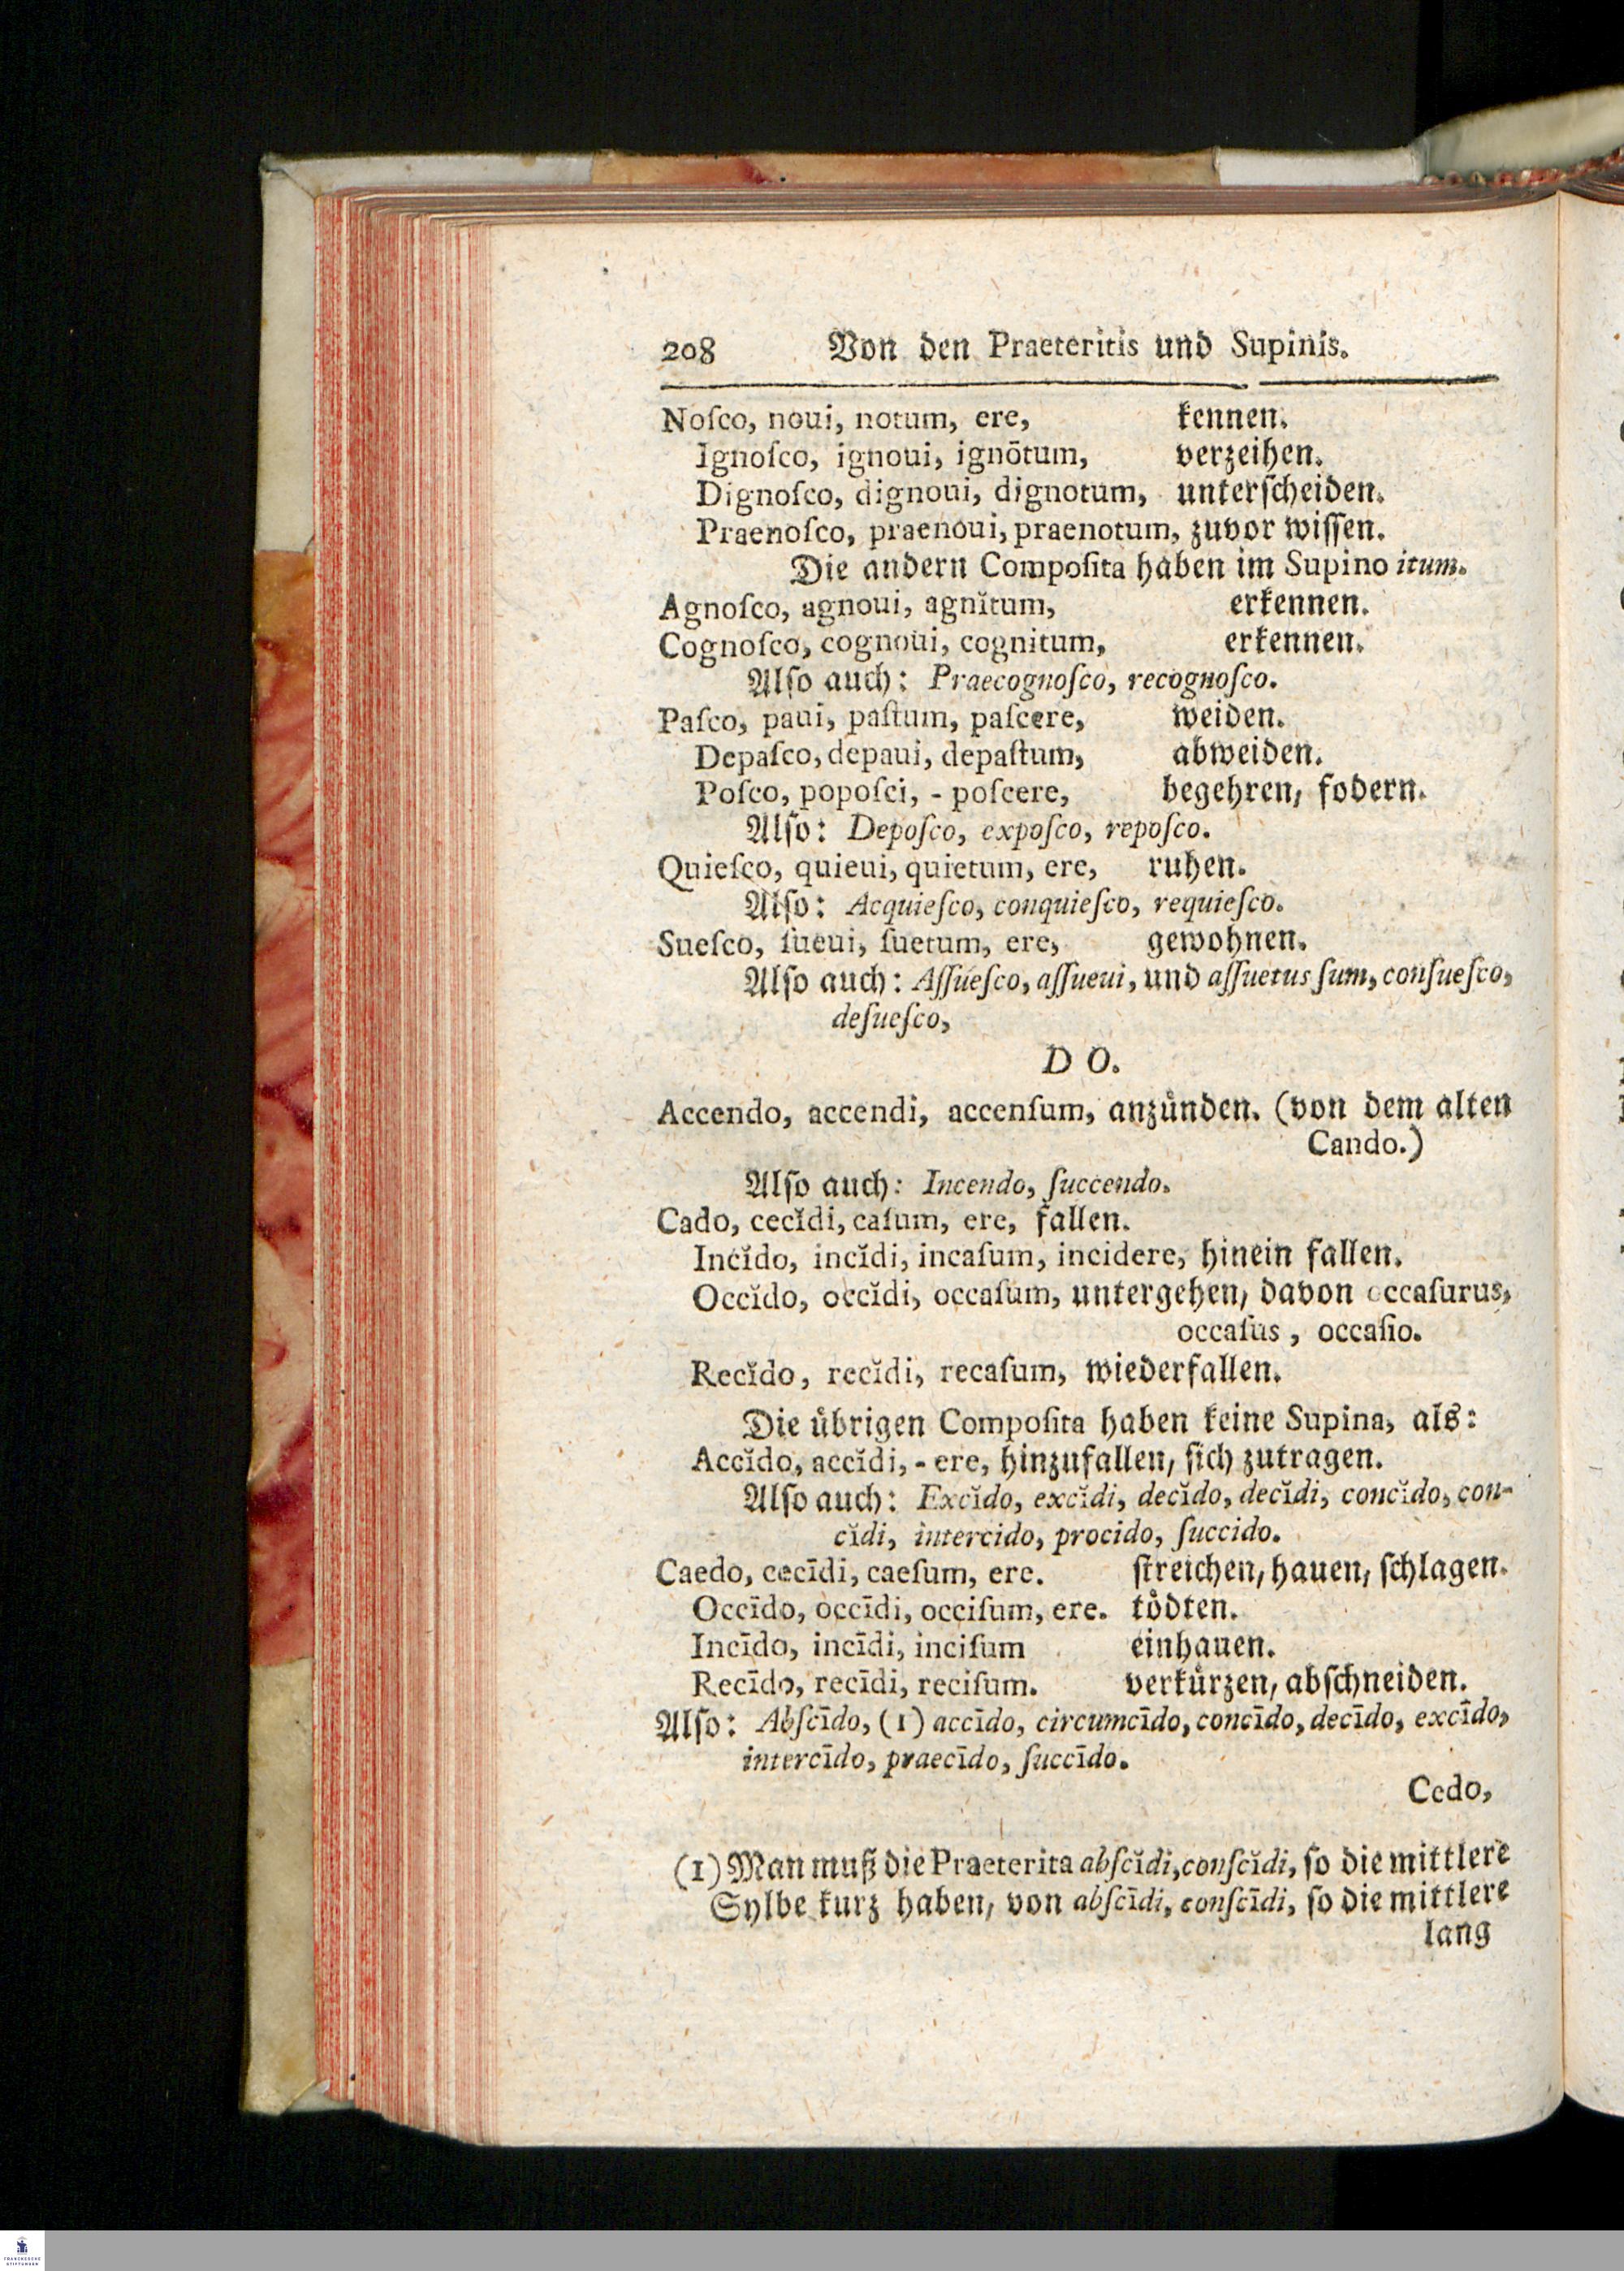 208 Von den Praeteritis und Supinis.
Noſco, noui, notum, ere, kennen.
Ignoſco, ignoui, ignōtum, verzeihen.
Dignoſco, dignoui, dignotum, unterſcheiden.
Praenoſco, praenoui, praenotum, zuvor wiſſen.
Die andern Compoſita haben im Supino itum.
Agnoſco, agnoui, agnĭtum, erkennen.
Cognoſco, cognoui, cognitum, erkennen.
Alſo auch: Praecognoſco, recognoſco.
Paſco, paui, paſtum, paſcere, weiden.
Depaſco, depaui, depaſtum, abweiden.
Poſco, popoſci, - poſcere, begehren, fodern.
Alſo: Depoſco, expoſco, repoſco.
Quieſco, quieui, quietum, ere, ruhen.
Alſo: Acquieſco, conquieſco, requieſco.
Sueſco, ſueui, ſuetum, ere, gewohnen.
Alſo auch: Aſſueſco, aſſueui, und aſſuetus ſum, conſueſco,
deſueſco,
D O.
Accendo, accendi, accenſum, anzuͤnden. (von dem alten
Cando.)
Alſo auch: Incendo, ſuccendo.
Cado, cecĭdi, caſum, ere, fallen.
Incĭdo, incĭdi, incaſum, incidere, hinein fallen.
Occĭdo, occĭdi, occaſum, untergehen, davon occaſurus,
occaſus, occaſio.
Recĭdo, recĭdi, recaſum, wiederfallen.
Die uͤbrigen Compoſita haben keine Supina, als:
Accĭdo, accĭdi, - ere, hinzufallen, ſich zutragen.
Alſo auch: Excĭdo, excĭdi, decĭdo, decĭdi, concĭdo, con-
cĭdi, intercido, procido, ſuccido.
Caedo, cecīdi, caeſum, ere. ſtreichen, hauen, ſchlagen.
Occīdo, occīdi, occiſum, ere. toͤdten.
Incīdo, incīdi, inciſum einhauen.
Recīdo, recīdi, reciſum. verkuͤrzen, abſchneiden.
Alſo: Abſcīdo, (1) accīdo, circumcīdo, concīdo, decīdo, excīdo,
intercīdo, praecīdo, ſuccīdo.
Cedo,
(1) Man muß die Praeterita abſcĭdi, conſcĭdi, ſo die mittlere
Sylbe kurz haben, von abſcīdi, conſcīdi, ſo die mittlere
lang
FRANCKESCHE
STIFTUNGEN